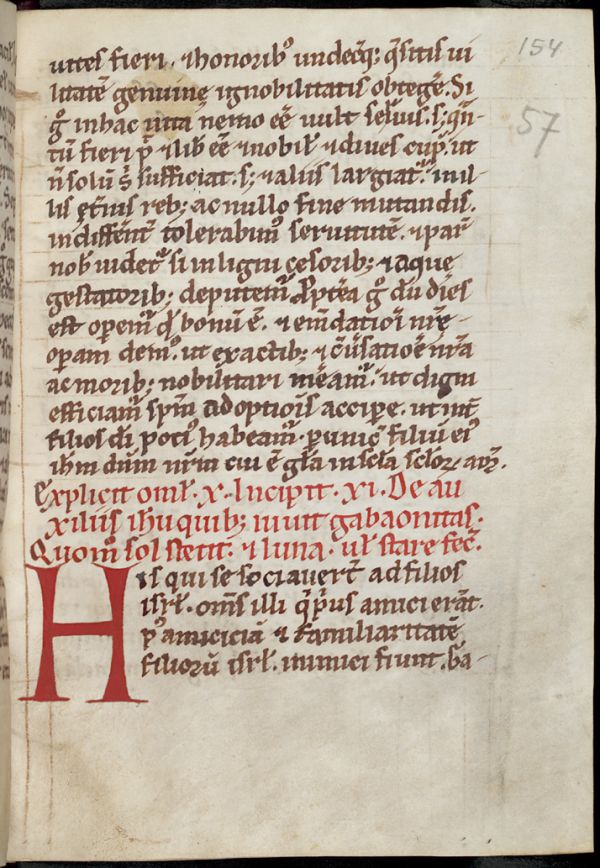 154
57
uites fieri · ⁊honorib᷒ undecq᷒; q̄sitis ui
litatē genuinę ignobilitatis obtegẽ. Si
g̊ inhac uita nemo eẽ uult seruus. s; q̄n
tū fieri p̄ ⁊lib̄ eẽ ⁊nobil̄ ⁊diues cup̄. ut
n̄ solū s̄ sufficiat. s; ⁊aliis largiat᷑. inil
lis reb; ac nullo fine mutandis.
indiffent̄ tolerabim᷒ seruitutē. ⁊par̄
nob̄ uidet᷑ si inligni cęsorib; ⁊ aquę
gestatorib; deputem᷒. Ꝓpt̄ea g̊ dū dies
est operem᷒ qd̄ bonū ē. ⁊ em̄datiōi nr̄ę
operam dem᷒. ut exactib; ⁊ c̄uersatiōe nr̄a
ac morib; nobilitari meam᷒. ut digni
efficiam᷒ sp̄m adoptiōis accipe. ut int̄
filios dī poti᷒ habeam᷒. p unic̄ filiū ei᷒
ih̄m dn̄m nr̄m cui ē gl̄a in sc̄la sclor̄. am̄.
Explicit oml̄. x. Incipit. xi. De au
xiliis ih̄u quib; iuuit gabaonitas.
Quom᷒ sol stetit: ⁊ luna. ul̄ stare fec̄.
His qui se sociauer̄t ad filios
isrl̄. om̄s illi q̄ prius amici erāt.
p᷒ amiciciā ⁊ familiaritatē
filiorū isrl̄. inimici fiunt. ḡa